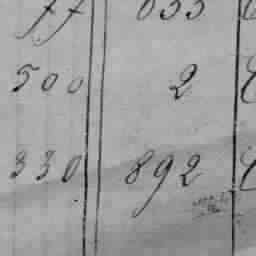 77 033
500 2
330 892